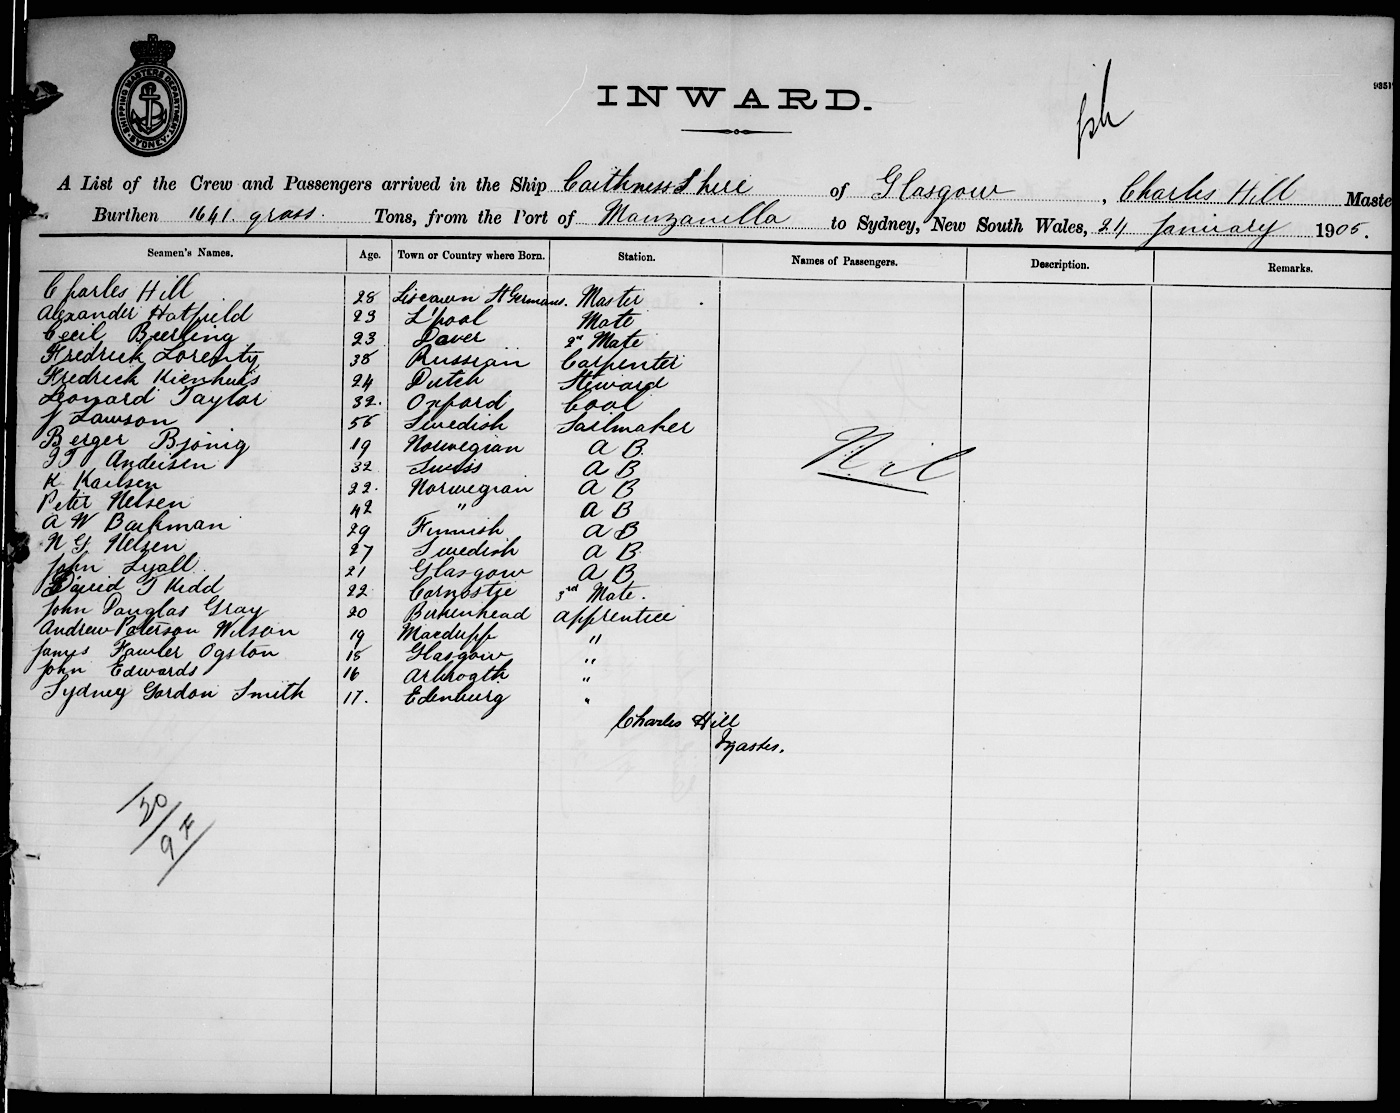 SHIPPING MASTERS DEPARTMENT
SYDNEY
INWARD.
A List of the Crew and Passengers arrived in the Ship Caithness Shire of Glasgow, Charles Hill Maste
Burthen 1641. gross. Tons, from the Port of Manzanilla to Sydney, New South Wales, 24 January 1905.
Seamen's Names. Age. Town or Country where Born. Station. Names of Passengers. Description. Remarks.
Charles Hill 28 Liscawn St Germans. Master
Alexander Hatfield 23 L'pool Mate
Cecil Bierling 23 Dover 2nd Mate
Fredrick Lorenty 38 Russian Carpenter
Fredrick Kienhuis 24 Dutch Steward
Leonard Taylor 32. Oxford Cook
J Lawson 56 Swedish Sailmaker
Berger Bjönig 19 Norwegian A B
Andersen 32 Swiss A B
Nil
K Karlsen 22. Norwegian A B
Peter Nelsen 42 " A B
A W Backman 29 Finnish A B
N G Nelsen 27 Swedish A B
John Lyall. 21 Glasgow A B
David T Kidd 22 Carnostie 3rd Mate.
John Douglas Gray 20 Birkenhead Apprentice
Andrew Paterson Wilson 19 Macduff "
James Fowler Ogston 18 Glasgow "
John Edwards 16 Arbrogth "
Sydney Gordon Smith 17. Edenburg "
Charles Hill
Master.
20
9 F